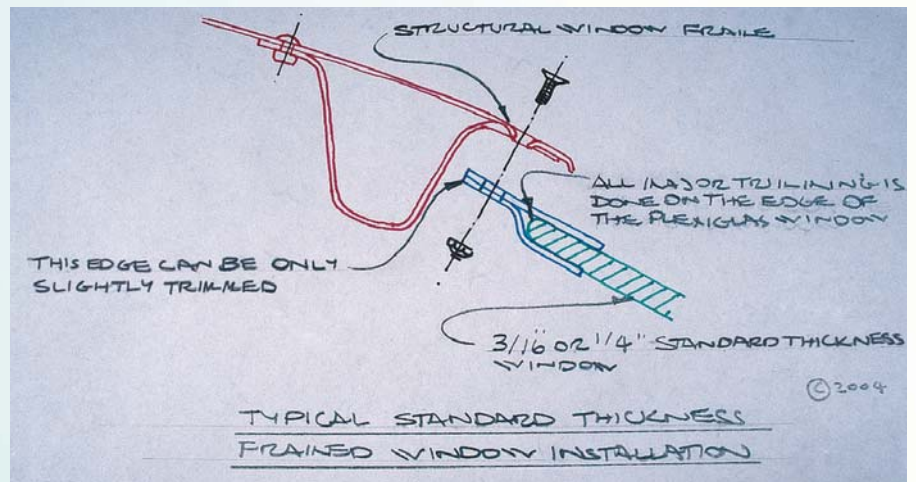 STRUCTURAL WINDOW FRAME
ALL MAJOR TRIMMING IS
DONE ON THE EDGE OF
THE PLEXIGLAS WINDOW
THIS EDGE CAN BE ONLY
SLIGHTLY TRIMMED
3/16 OR 1/4" STANDARD THICKNESS
WINDOW
© 2004
TYPICAL STANDARD THICKNESS
FRAMED WINDOW INSTALLATION